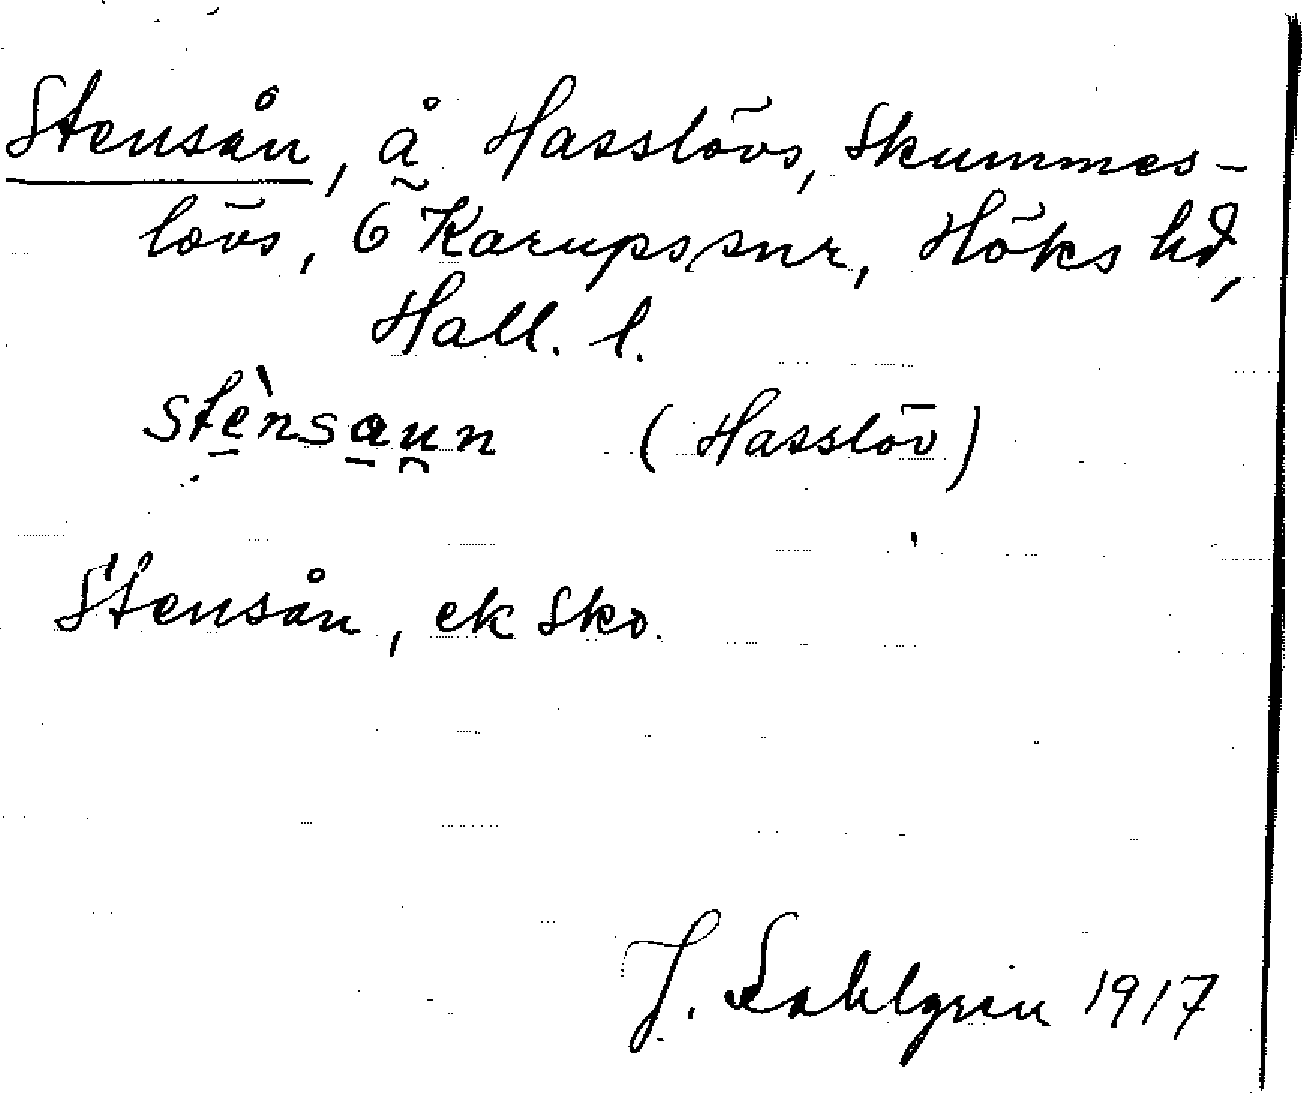 Stensån, å Hasslövs, Skummes-
lövs, Ö Karups snr, Höks hd,
Hall. l.
stènsaun (Hasslöv)
Stensån, ek Sko.
J. Sahlgren 1917